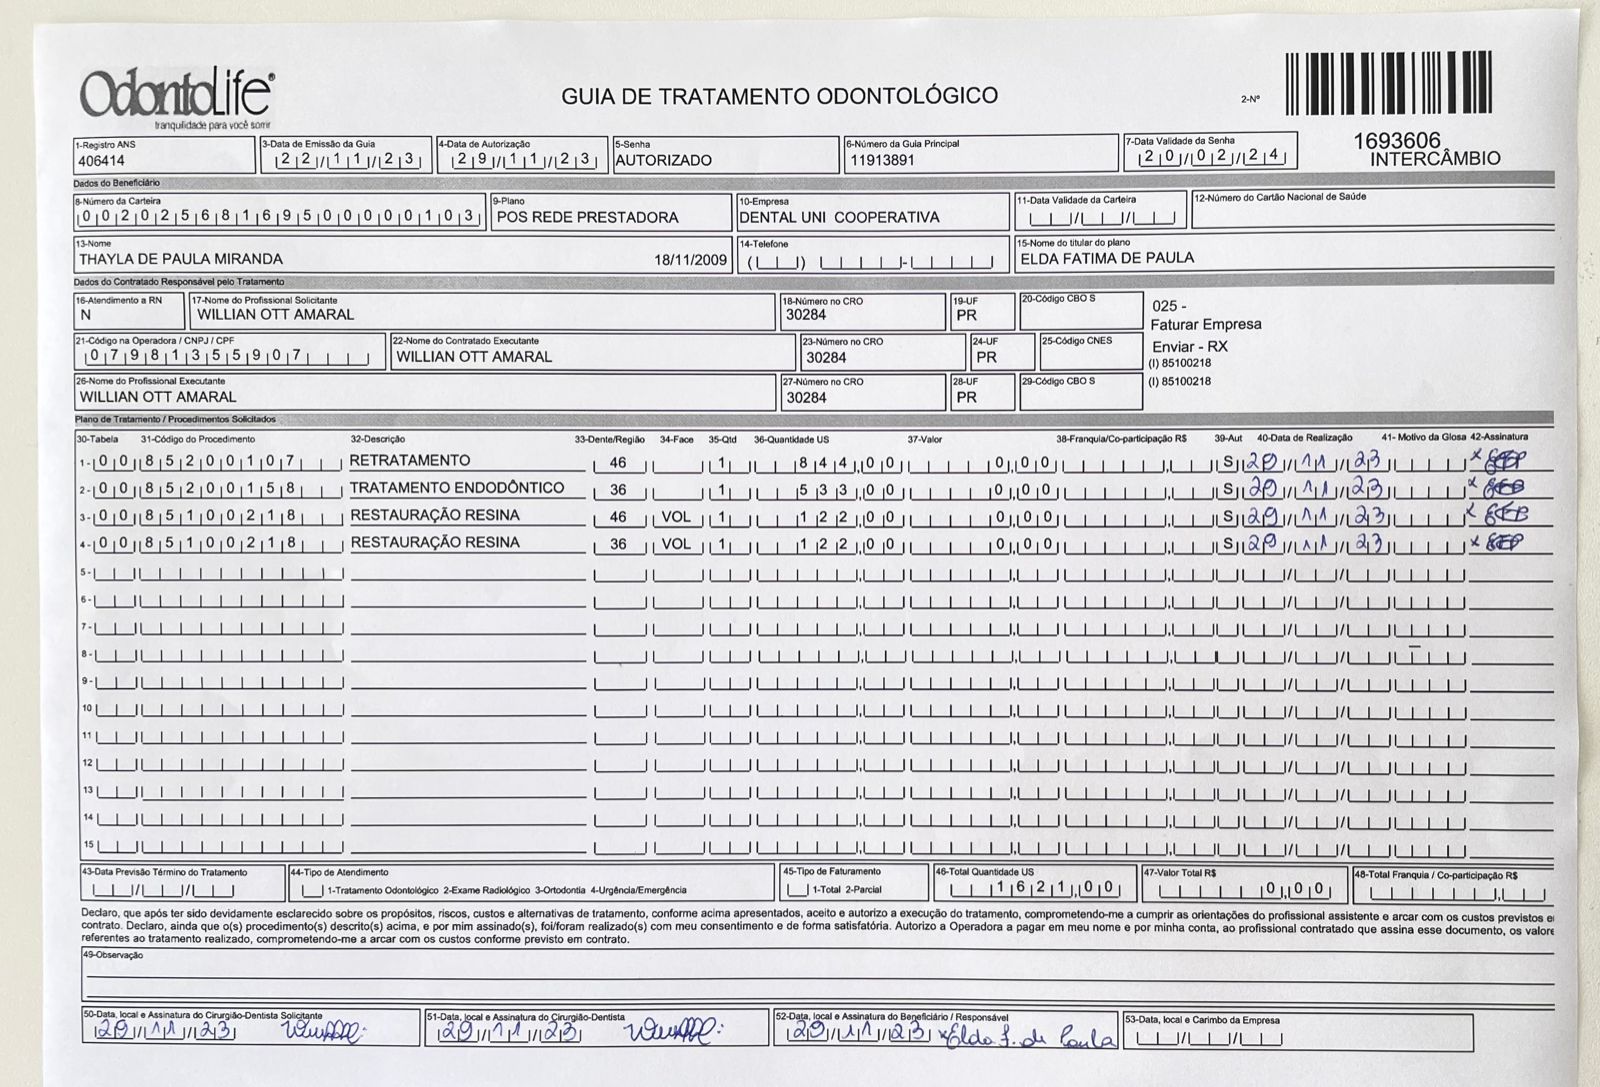 OdontoLife®
tranquilidade para você sorrir
GUIA DE TRATAMENTO ODONTOLÓGICO
2-Nº
1693606
INTERCÂMBIO
1-Registro ANS
406414
3-Data de Emissão da Guia
22/11/23
4-Data de Autorização
29/11/23
5-Senha
AUTORIZADO
6-Número da Guia Principal
11913891
7-Data Validade da Senha
20/02/24
Dados do Beneficiário
8-Número da Carteira
00202568169500000103
9-Plano
POS REDE PRESTADORA
10-Empresa
DENTAL UNI COOPERATIVA
11-Data Validade da Carteira
12-Número do Cartão Nacional de Saúde
13-Nome
THAYLA DE PAULA MIRANDA 18/11/2009
14-Telefone
15-Nome do titular do plano
ELDA FATIMA DE PAULA
Dados do Contratado Responsável pelo Tratamento
16-Atendimento a RN
N
17-Nome do Profissional Solicitante
WILLIAN OTT AMARAL
18-Número no CRO
30284
19-UF
PR
20-Código CBO S
025 -
Faturar Empresa
Enviar - RX
(I) 85100218
(I) 85100218
21-Código na Operadora / CNPJ / CPF
07981355907
22-Nome do Contratado Executante
WILLIAN OTT AMARAL
23-Número no CRO
30284
24-UF
PR
25-Código CNES
26-Nome do Profissional Executante
WILLIAN OTT AMARAL
27-Número no CRO
30284
28-UF
PR
29-Código CBO S
Plano de Tratamento / Procedimentos Solicitados
30-Tabela 31-Código do Procedimento 32-Descrição 33-Dente/Região 34-Face 35-Qtd 36-Quantidade US 37-Valor 38-Franquia/Co-participação R$ 39-Aut 40-Data de Realização 41- Motivo da Glosa 42-Assinatura
1- 00 85200107 RETRATAMENTO 46 1 844,00 0,00 S 29/11/23 x
2- 00 85200158 TRATAMENTO ENDODÔNTICO 36 1 533,00 0,00 S 29/11/23 x
3- 00 85100218 RESTAURAÇÃO RESINA 46 VOL 1 122,00 0,00 S 29/11/23 x
4- 00 85100218 RESTAURAÇÃO RESINA 36 VOL 1 122,00 0,00 S 29/11/23 x
5-
6-
7-
8-
9-
10
11
12
13
14
15
43-Data Previsão Término do Tratamento
44-Tipo de Atendimento
1-Tratamento Odontológico 2-Exame Radiológico 3-Ortodontia 4-Urgência/Emergência
45-Tipo de Faturamento
1-Total 2-Parcial
46-Total Quantidade US
1621,00
47-Valor Total R$
0,00
48-Total Franquia / Co-participação R$
Declaro, que após ter sido devidamente esclarecido sobre os propósitos, riscos, custos e alternativas de tratamento, conforme acima apresentados, aceito e autorizo a execução do tratamento, comprometendo-me a cumprir as orientações do profissional assistente e arcar com os custos previstos e
contrato. Declaro, ainda que o(s) procedimento(s) descrito(s) acima, e por mim assinado(s), foi/foram realizado(s) com meu consentimento e de forma satisfatória. Autorizo a Operadora a pagar em meu nome e por minha conta, ao profissional contratado que assina esse documento, os valore
referentes ao tratamento realizado, comprometendo-me a arcar com os custos conforme previsto em contrato.
49-Observação
50-Data, local e Assinatura do Cirurgião-Dentista Solicitante
29/11/23
51-Data, local e Assinatura do Cirurgião-Dentista
29/11/23
52-Data, local e Assinatura do Beneficiário / Responsável
29/11/23 x Elda F. de Paula
53-Data, local e Carimbo da Empresa